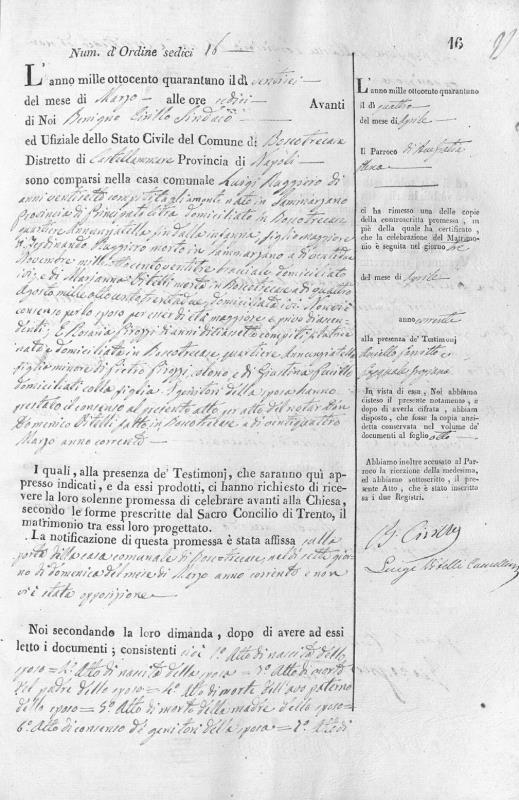 Num. d'Ordine sedici 16
16
L'anno mille ottocento quarantano il dì ventisei
del mese di Marzo alle ore sedici Avanti
di Noi Benigno Cirillo Sindaco
ed Ufiziale dello Stato Civile del Comune di Boscotrecase
Distretto di Castellammare Provincia di Napoli
sono comparsi nella casa comunale Luigi Ruggiero di
anni ventisette compiti nato in Sammarzano
Provincia di Principato citra domiciliato in Boscotrecase
quartiere Annunziatella fin dalla infanzia figlio maggiore
di Ferdinando Ruggiero morto in Sammarzano a dì
Novembre mille ottocento ventitre bracciale domiciliato
ivi, e di Marianna Vitelli morta in Boscotrecase a dì quattro
Agosto mille ottocento trentadue domiciliata ivi. Non vi è
consenso per lo sposo per esser di età maggiore e privo di ascen
denti. E Rosaria Pirozzi di anni diciasette compiti filatrice
nata e domiciliata in Boscotrecase quartiere Annunziatella
figlia minore di Pietro Pirozzi colono e di Giustina
domiciliati colla figlia. I genitori della sposa hanno
prestato il consenso al presente atto per atto del notar Don
Domenico Vitelli fatto in Boscotrecase a dì ventiquattro
Marzo anno corrente
I quali, alla presenza de' Testimonj, che saranno quì ap-
presso indicati, e da essi prodotti, ci hanno richiesto di rice-
vere la loro solenne promessa di celebrare avanti alla Chiesa,
secondo le forme prescritte dal Sacro Concilio di Trento, il
matrimonio tra essi loro progettato.
La notificazione di questa promessa è stata affissa sulla
porta della casa comunale di Boscotrecase nel dì sette gior
no di domenica del mese di Marzo anno corrente e non
vi è stata opposizione
Noi secondando la loro dimanda, dopo di avere ad essi
letto i documenti; consistenti cioè 1° Atto di nascita dello
sposo = 2° Atto di nascita della sposa = 3° Atto di morte
del padre dello sposo = 4° Atto di morte dell'avo paterno
dello sposo = 5° Atto di morte della madre dello sposo =
6° Atto di consenso de' genitori della sposa = 7° Atto di
L'anno mille ottocento quarantano
il dì quattro
del mese di Aprile
Il Parroco di
Ana
ci ha rimesso una delle copie
della controscritta promessa, in
piè della quale ha certificato,
che la celebrazione del Matrimo-
nio è seguita nel giorno tre
del mese di Aprile
anno corrente
alla presenza de' Testimonj
Aniello
In vista di essa, Noi abbiamo
cisteso il presente notamento, e
dopo di averla cifrata, abbiam
disposto, che fosse la copia anzi-
detta conservata nel volume de'
documenti al foglio otto
Abbiamo inoltre accusato al Par-
roco la ricezione della medesima,
ed abbiamo sottoscritto, il pre-
sente Atto, che è stato inscritto
su i due Registri.
B. Cirillo
Luigi Vitelli Cancelliere